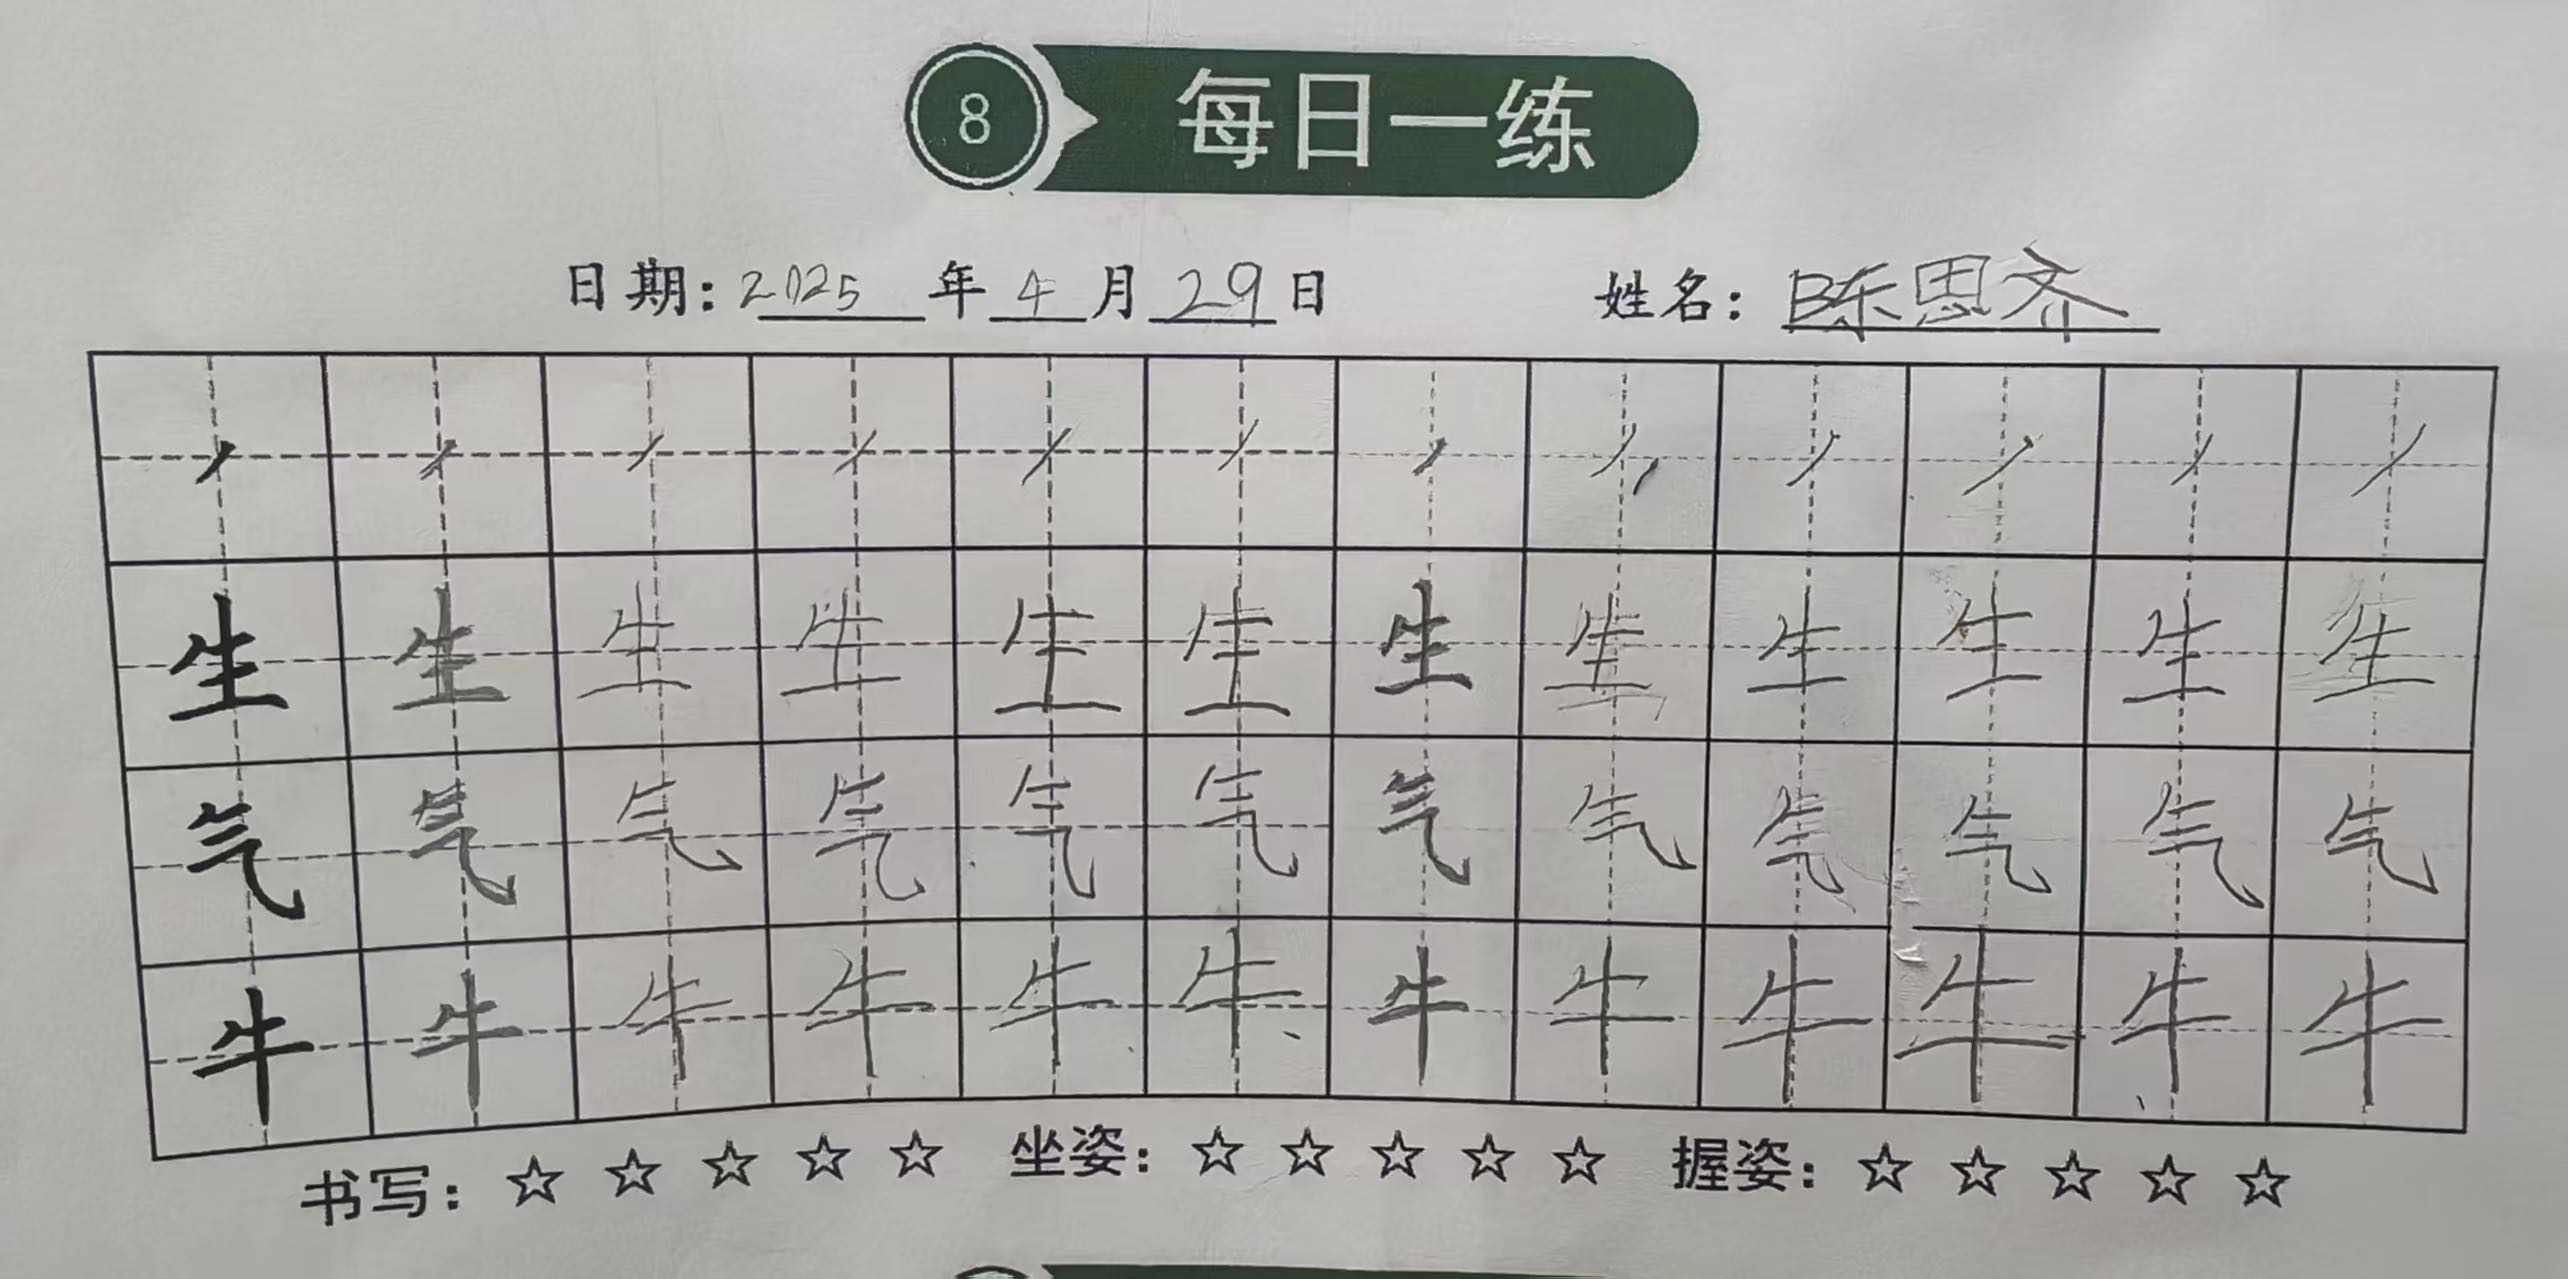 8 每日一练
日期：2025年4月29日 姓名：陈思齐
丿丿丿丿丿丿丿丿丿丿丿丿
生生生生生生生生生生生生
气气气气气气气气气气气气
牛牛牛牛牛牛牛牛牛牛牛牛
书写：☆☆☆☆☆ 坐姿：☆☆☆☆☆ 握姿：☆☆☆☆☆